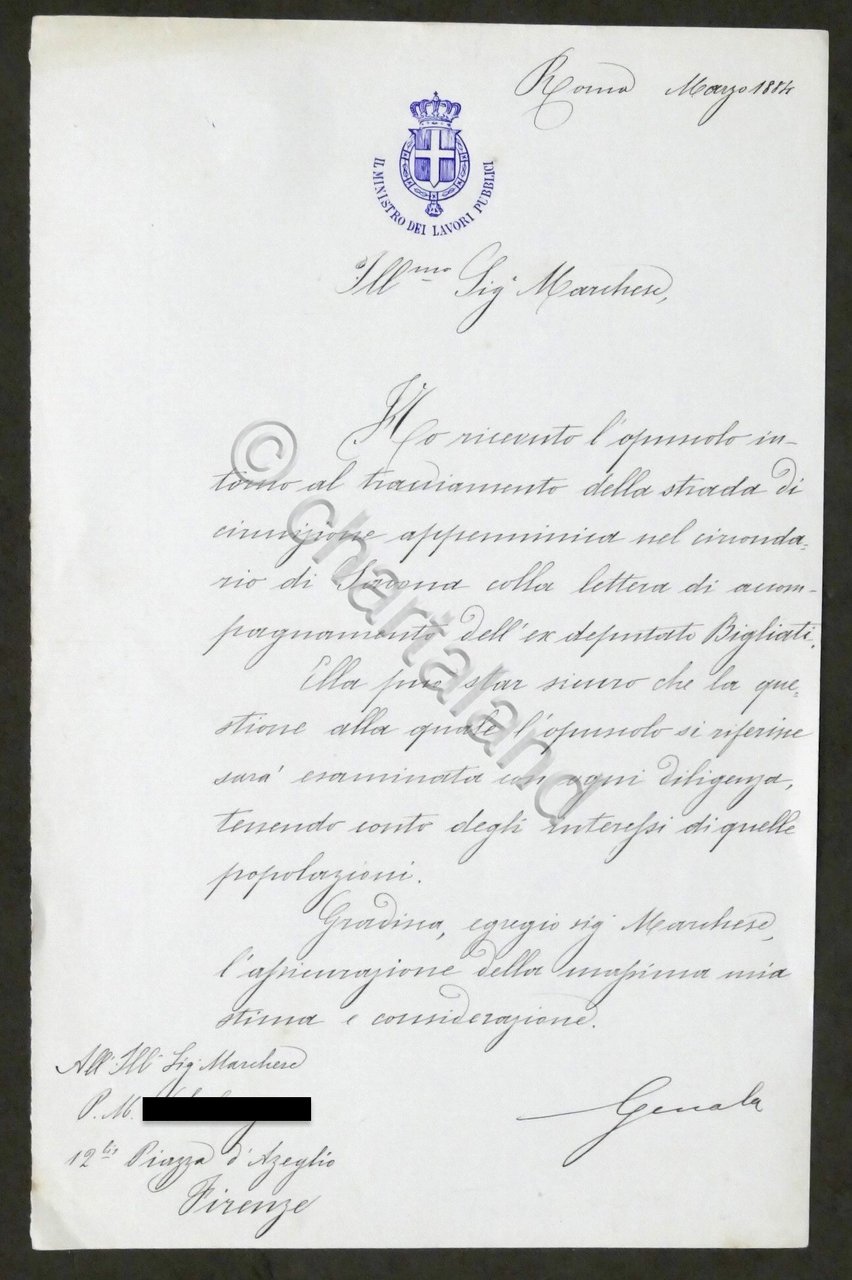 Roma Marzo 1884
IL MINISTRO DEI LAVORI PUBBLICI
Ill.mo Sig.r Marchese,
Ho ricevuto l'opuscolo in-
torno al tracciamento della strada di
circonvallazione appenninica nel circonda-
rio di Savona colla lettera di accom-
pagnamento dell'ex deputato Bigliati.
Ella può star sicuro che la que-
stione alla quale l'opuscolo si riferisce
sarà esaminata con ogni diligenza,
tenendo conto degli interessi di quelle
popolazioni.
Gradisca, egregio sig.r Marchese,
l'assicurazione della massima mia
stima e considerazione.
Genala
All'Ill.º Sig.r Marchese
P. M.
12 bis Piazza d'Azeglio
Firenze
© chartaland